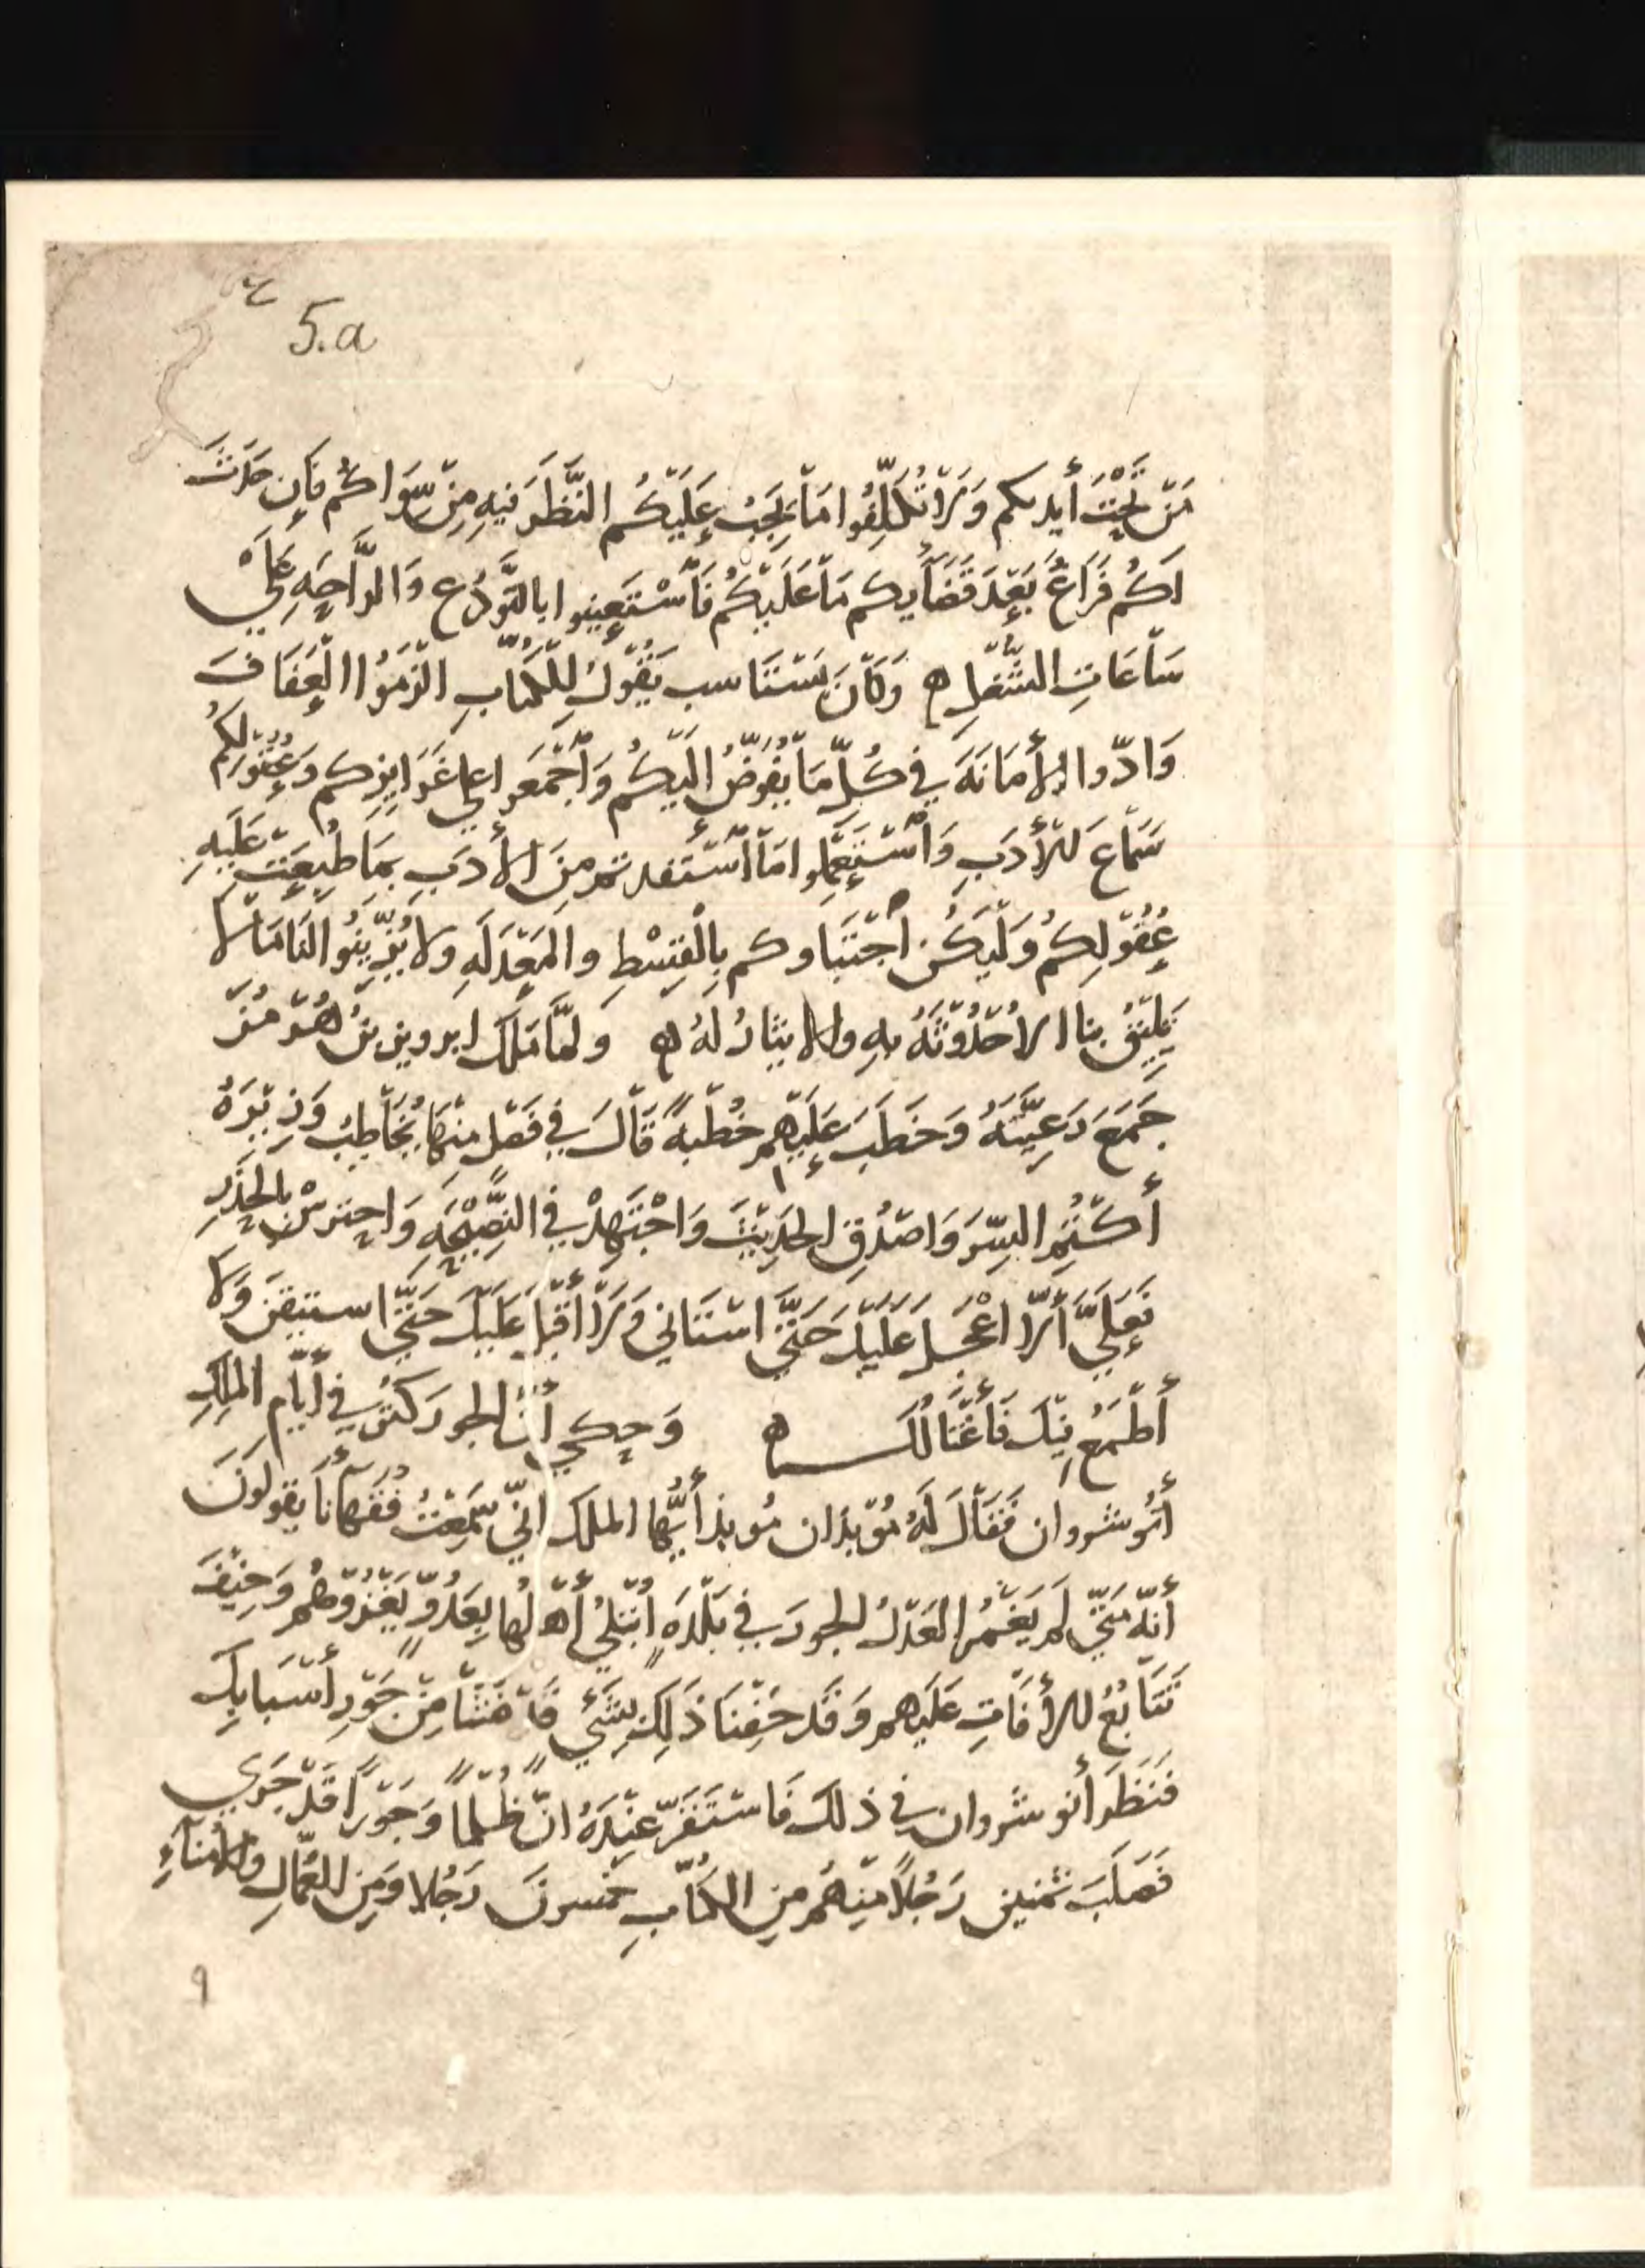 5.a
مَنْ تَحْتَ أيديكم وَلَا تُكَلِّفُوا مَا يَجِبُ عَلَيْكُم النَّظَرَ فِيهِ مِنْ سِوَاكُم فَإِن حَدَثَ
لَكُم فَرَاغٌ بَعْدَ قَضَايكم مَا عَلَيْكُم فَاسْتَعِينوا بالتَّوَدُّع وَالرَّاحَهِ عَلَي
سَاعَاتِ الشُّغلِ ه وَكَانَ يَسْتَاسب يَقُولُ لِلكُتَّابِ الْزَمُوا الْعَفَافَ
وَادّوا الأَمَانَهَ فِي كُلِّ مَا يُفَوَّضُ الَيْكُم وَاجْمَعوا علي غَرَايِزِكم وَعُقُولِكُم
سَمَاعَ الْأَدَبِ وَاسْتَعْمِلوا مَا اسْتَفدتم مِنَ الأَدَبِ بِمَا طُبِعَتْ عَلَيهِ
عُقُولُكُم وَلْيَكُن اجْتِبَاوكم بِالْقِسْطِ والمَعْدَلَهِ ولا تُزَيِّنُوا لَنَا مَا لَا
يَلِيْقُ بنا الاحْدُوثَهُ بهِ ولا الايثارُ لَهُ ه وَلمَّا مَلَكَ ابروين بنُ هُرْمُزَ
جَمَعَ رَعِيَّتَهُ وَخَطَبَ عَلَيْهِم خُطْبَهً قَالَ فِي فَصْلٍ مِنْهَا يُخَاطِبُ وَزِيْرَهُ
أكْتُمِ السِّرَ وَاصْدُقِ الحَدِيْثَ وَاجْتَهِدْ فِي النَّصِيْحَهِ وَاحترسْ بالحَذَرِ
فَعَلَيَّ ألَّا اعْجَلَ عَلَيْكَ حَتَّي استَاني وَلَا أقْبَلَ عَلَيْكَ حَتَّي استيقنَ وَلا
أطْمَعُ فِيْكَ فَأغْتَالُكَ ه وَحكي أنَّ الجور كَثُرَ فِي أيَّامِ الملِكِ
أنُوشروان فَقَالَ لَهُ مُوْبذان مُوبذ أيُّهَا الملك انِّي سَمِعْتُ فُقَهَآنَا يقولُونَ
أنّهُ مَتَي لم يَغْمُرِ العَدْلُ الجورَ فِي بَلْدَهٍ اُبْتليَ أهْلُهَا بِعَدُوٍّ يَغْزُوْهُم وَخِيْفَ
تَتَابُعُ الأفَاتِ عَلَيْهم وَقَدْ خِفْنَا ذَلِكَ بِشَيءٍ فَاضَ مِنْ جَوْرِ أسْبَابِكَ
فَنَظَرَ أنوشروان فِي ذلك فَاسْتَقَرَّ عِنْدَهُ انّ ظُلْمًا وَجَوْرًا قَدْ جَرَي
فَصَلَبَ ثمنين رَجُلاً مِنْهُم مِنَ الكُتَّابِ خمسونَ رَجُلا وَمِنَ العُمَّالِ والأُمَنَآءِ
٩